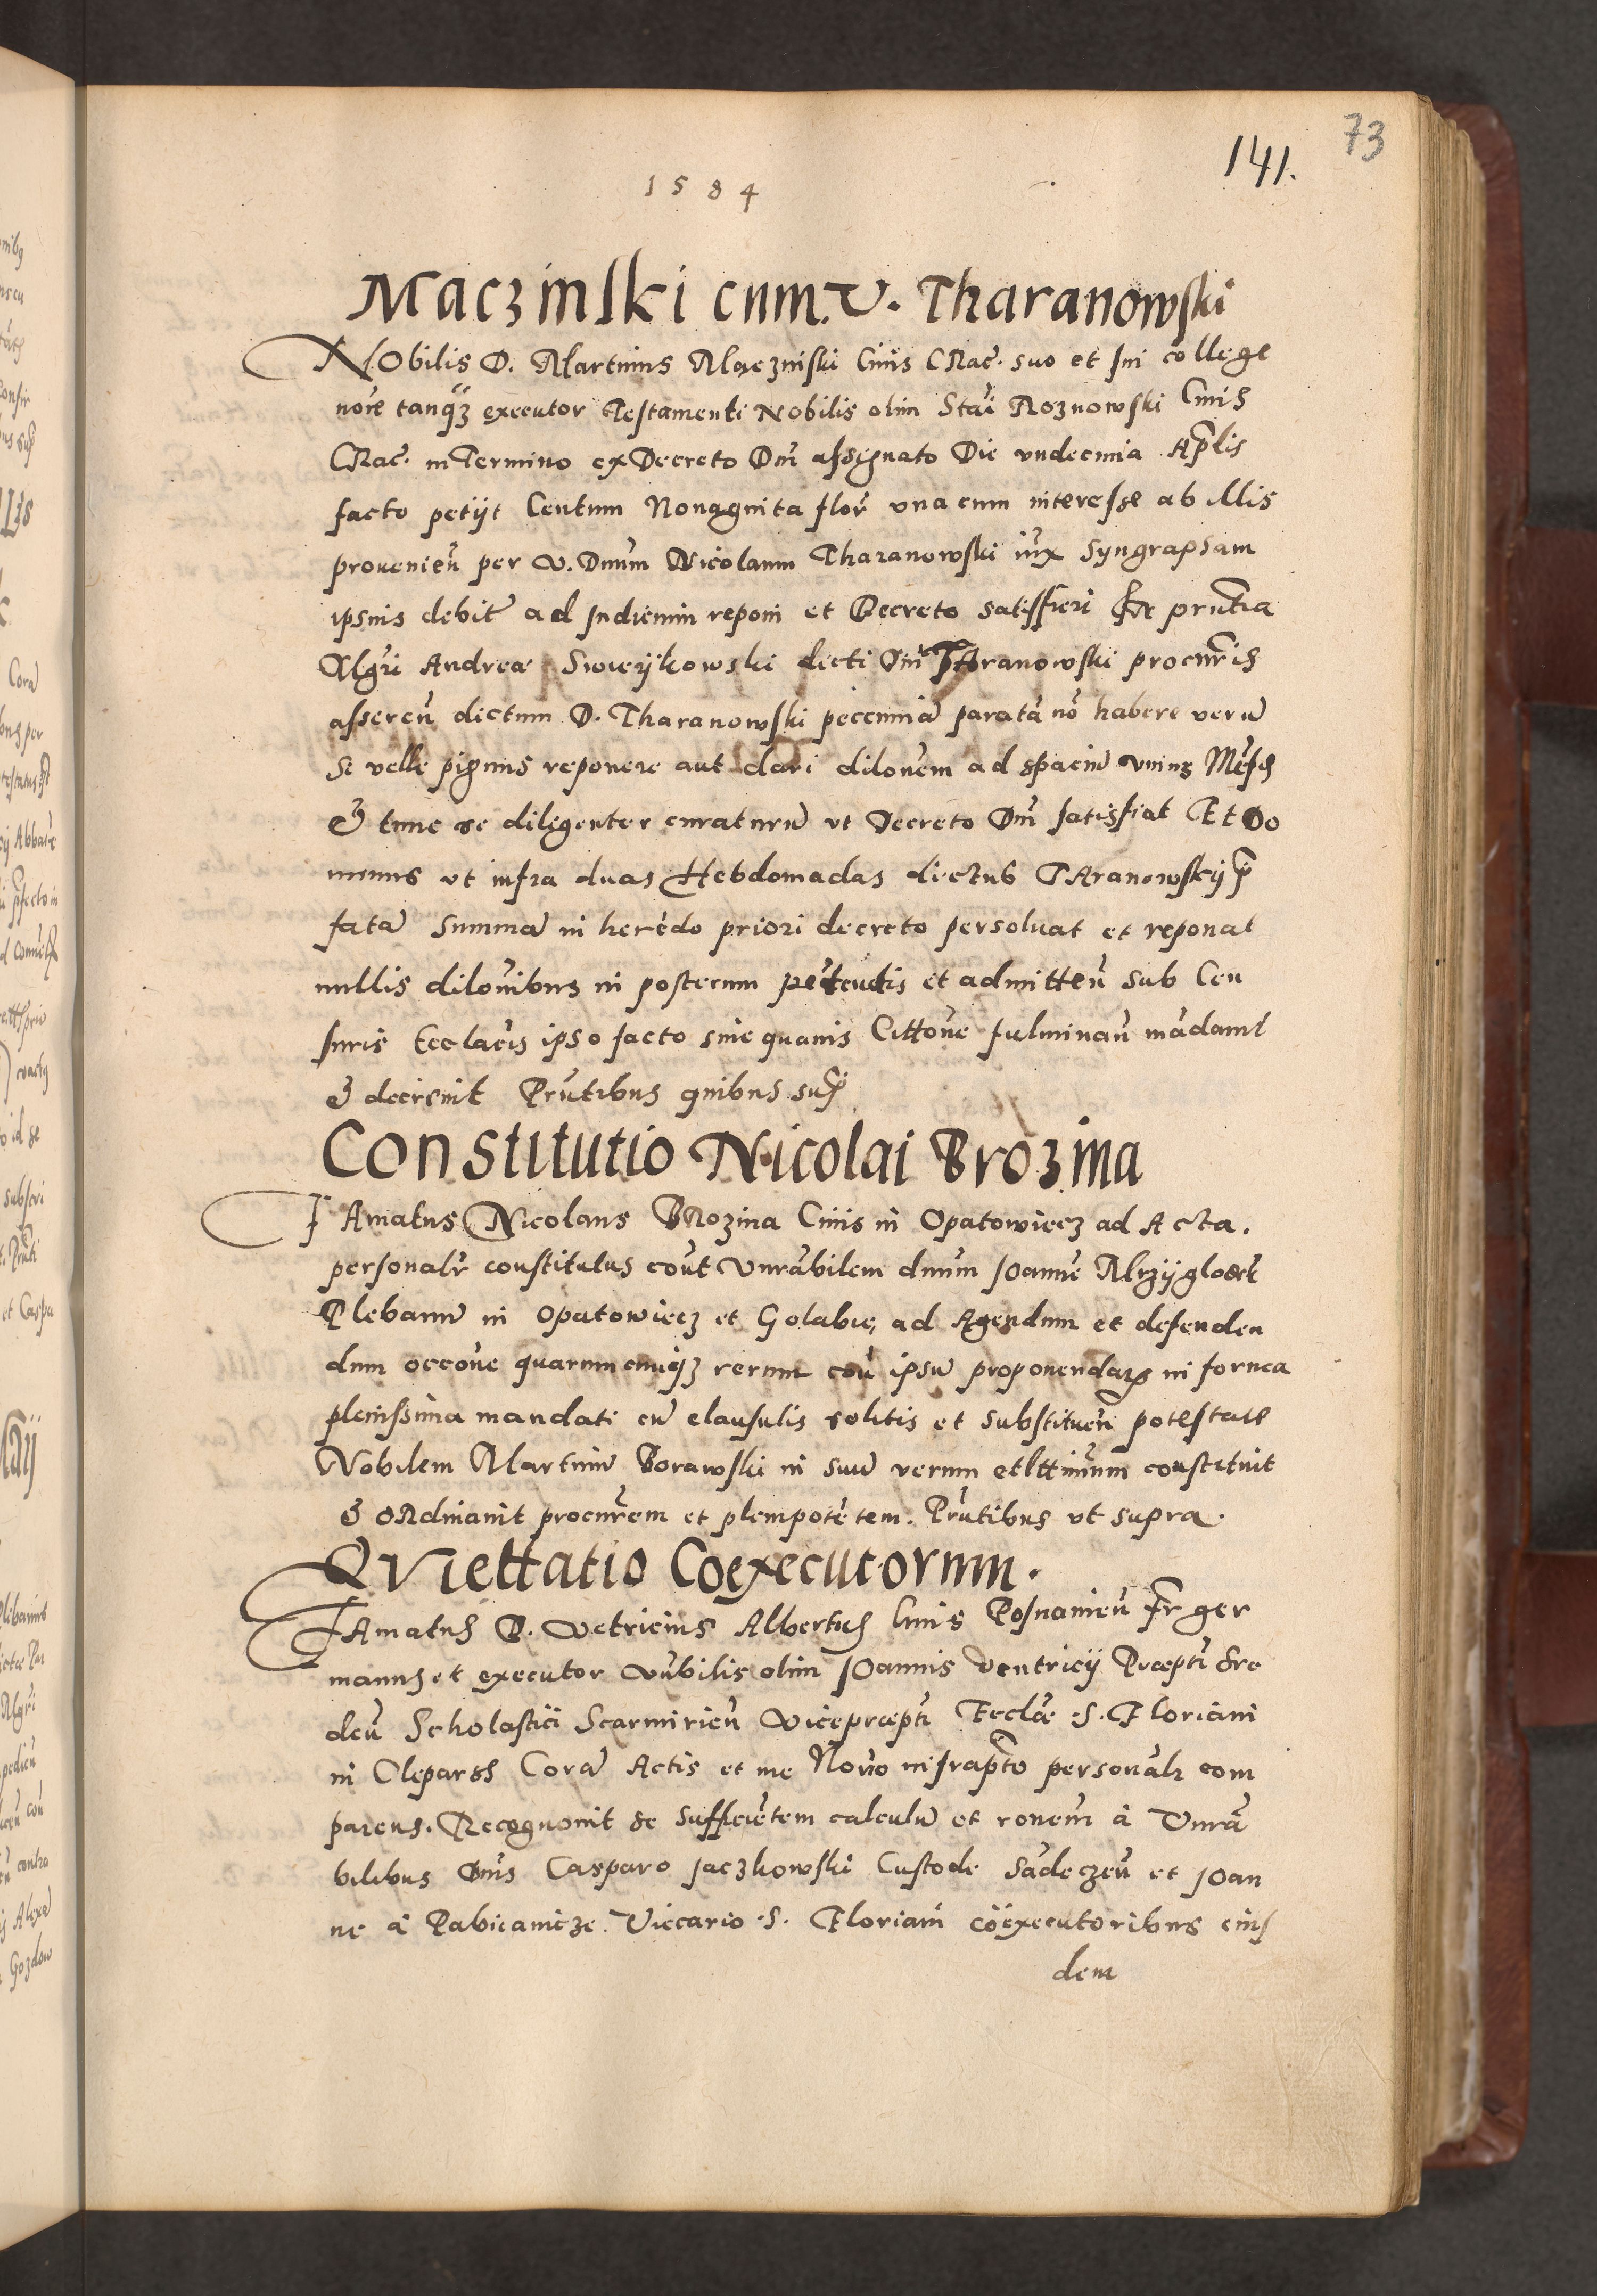 73
141.
1584
Maczinski cum V. Tharanowski
NObilis D. Martinus Maczinski Civis CRac. suo et sui college
noīe tanq̃ȝ executor Testamenti Nobilis olim Stāi Roznowski Civis
CRac. in Termino ex Decreto Dnī assignato Die undecima Aprlis
facto petijt Centum Nonaginta flor̄ una cum interesse ab illis
provenien̄ per V. Dnum Nicolaum Tharanowski iux̄ syngrapsam
ipsius debit̄ ad Iudicium reponi et Decreto satisfieri prn̄tia
Mgrī Andreæ Swieykowski dicti Dnī Tharanowski procur̄is
asseren̄ dictum D. Tharanowski pecuniā paratā nō habere verū
se velle pignus reponere aut dari dilōnem ad spaciū unius Mēsis
& tunc se diligenter curaturū ut Decreto Dnī satisfiat Et Do
minus ut infra duas Hebdomadas dictus THaranowskij p̄
fatā summā in herēdo priori decreto persolvat et reponat
nullis dilōnibus in posterum petendis et admitten̄ sub Cen
suris Eccl̄acis ipso facto sine quavis Cittōne fulminan̄ mādavit
& decrevit Prn̄tibus quibus sup̄
Constitutio Nicolai Brozina
FAmatus Nicolaus BRozina Civis in Opatowiecz ad Acta
personalr̄ constitutus con̄t Vnrābilem dnum IOannē
Plebanū in Opatowiecz et Golabie, ad Agendum et defenden
dum occōne quarumcunq̃ȝ rerum con̄ ipsū proponendarȝ in forma
plenissima mandati cū clausulis solitis et substituen̄ potestate
Nobilem Martinū Borawski in suū verum et lttimum constituit
& ORdinavit procur̄em et plenipotētem. Prn̄tibus ut supra.
QVIettatio Coexecutorum.
FAmatus D. Vetricius Albertus Civis Posnanien̄ fr̄ ger
manus et executor Vn̄bilis olim IOannis Ventricij Præptī
Scholastici Scarmirien̄ Vicepræptī Eccl̄æ S. Floriani
in Cleparz Corā Actis et me Norīo infrapt̄o personalr̄ com
parens. Recognovit se sufficiētem calculū et ronem̄ à Vnrā
bilibus Dnis Casparo Jaczkowski Custode Sādeczen̄ et IOan
ne à Pabianicze Viccario S. Floriani cōexecutoribus eius
dem